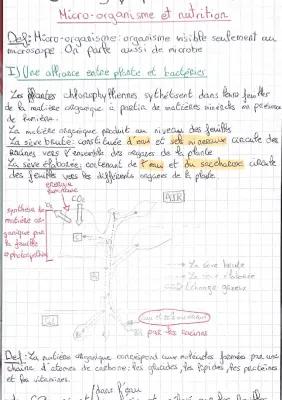 Micro-organisme et nutrition
Def: Micro-organisme: organisme visible seulement au
microscope. On parle aussi de microbe
I) Une alliance entre plante et bactéries
Les plantes chlorophylliennes synthétisent dans leurs feuilles
de la matière organique à partir de matières minérales en présence
de lumière.
La matière organique produit au niveau des feuilles
La sève brute: constituée d'eau et sels minéraux circule des
racines vers l'ensemble des organes de la plante
La sève élaborée: contenant de l'eau et du saccharose circule
des feuilles vers les différents organes de la plante.
énergie
lumineuse
CO₂
AIR
synthèse de
matière or-
ganique par
la feuille
→ La sève brute
→ La sève élaborée
échange gazeux
Sol
par les racines
Def: La matière organique correspond aux molécules formées par une
chaîne d'atomes de carbone: les glucides, les lipides, les protéines
et les vitamines.
dans l'eau